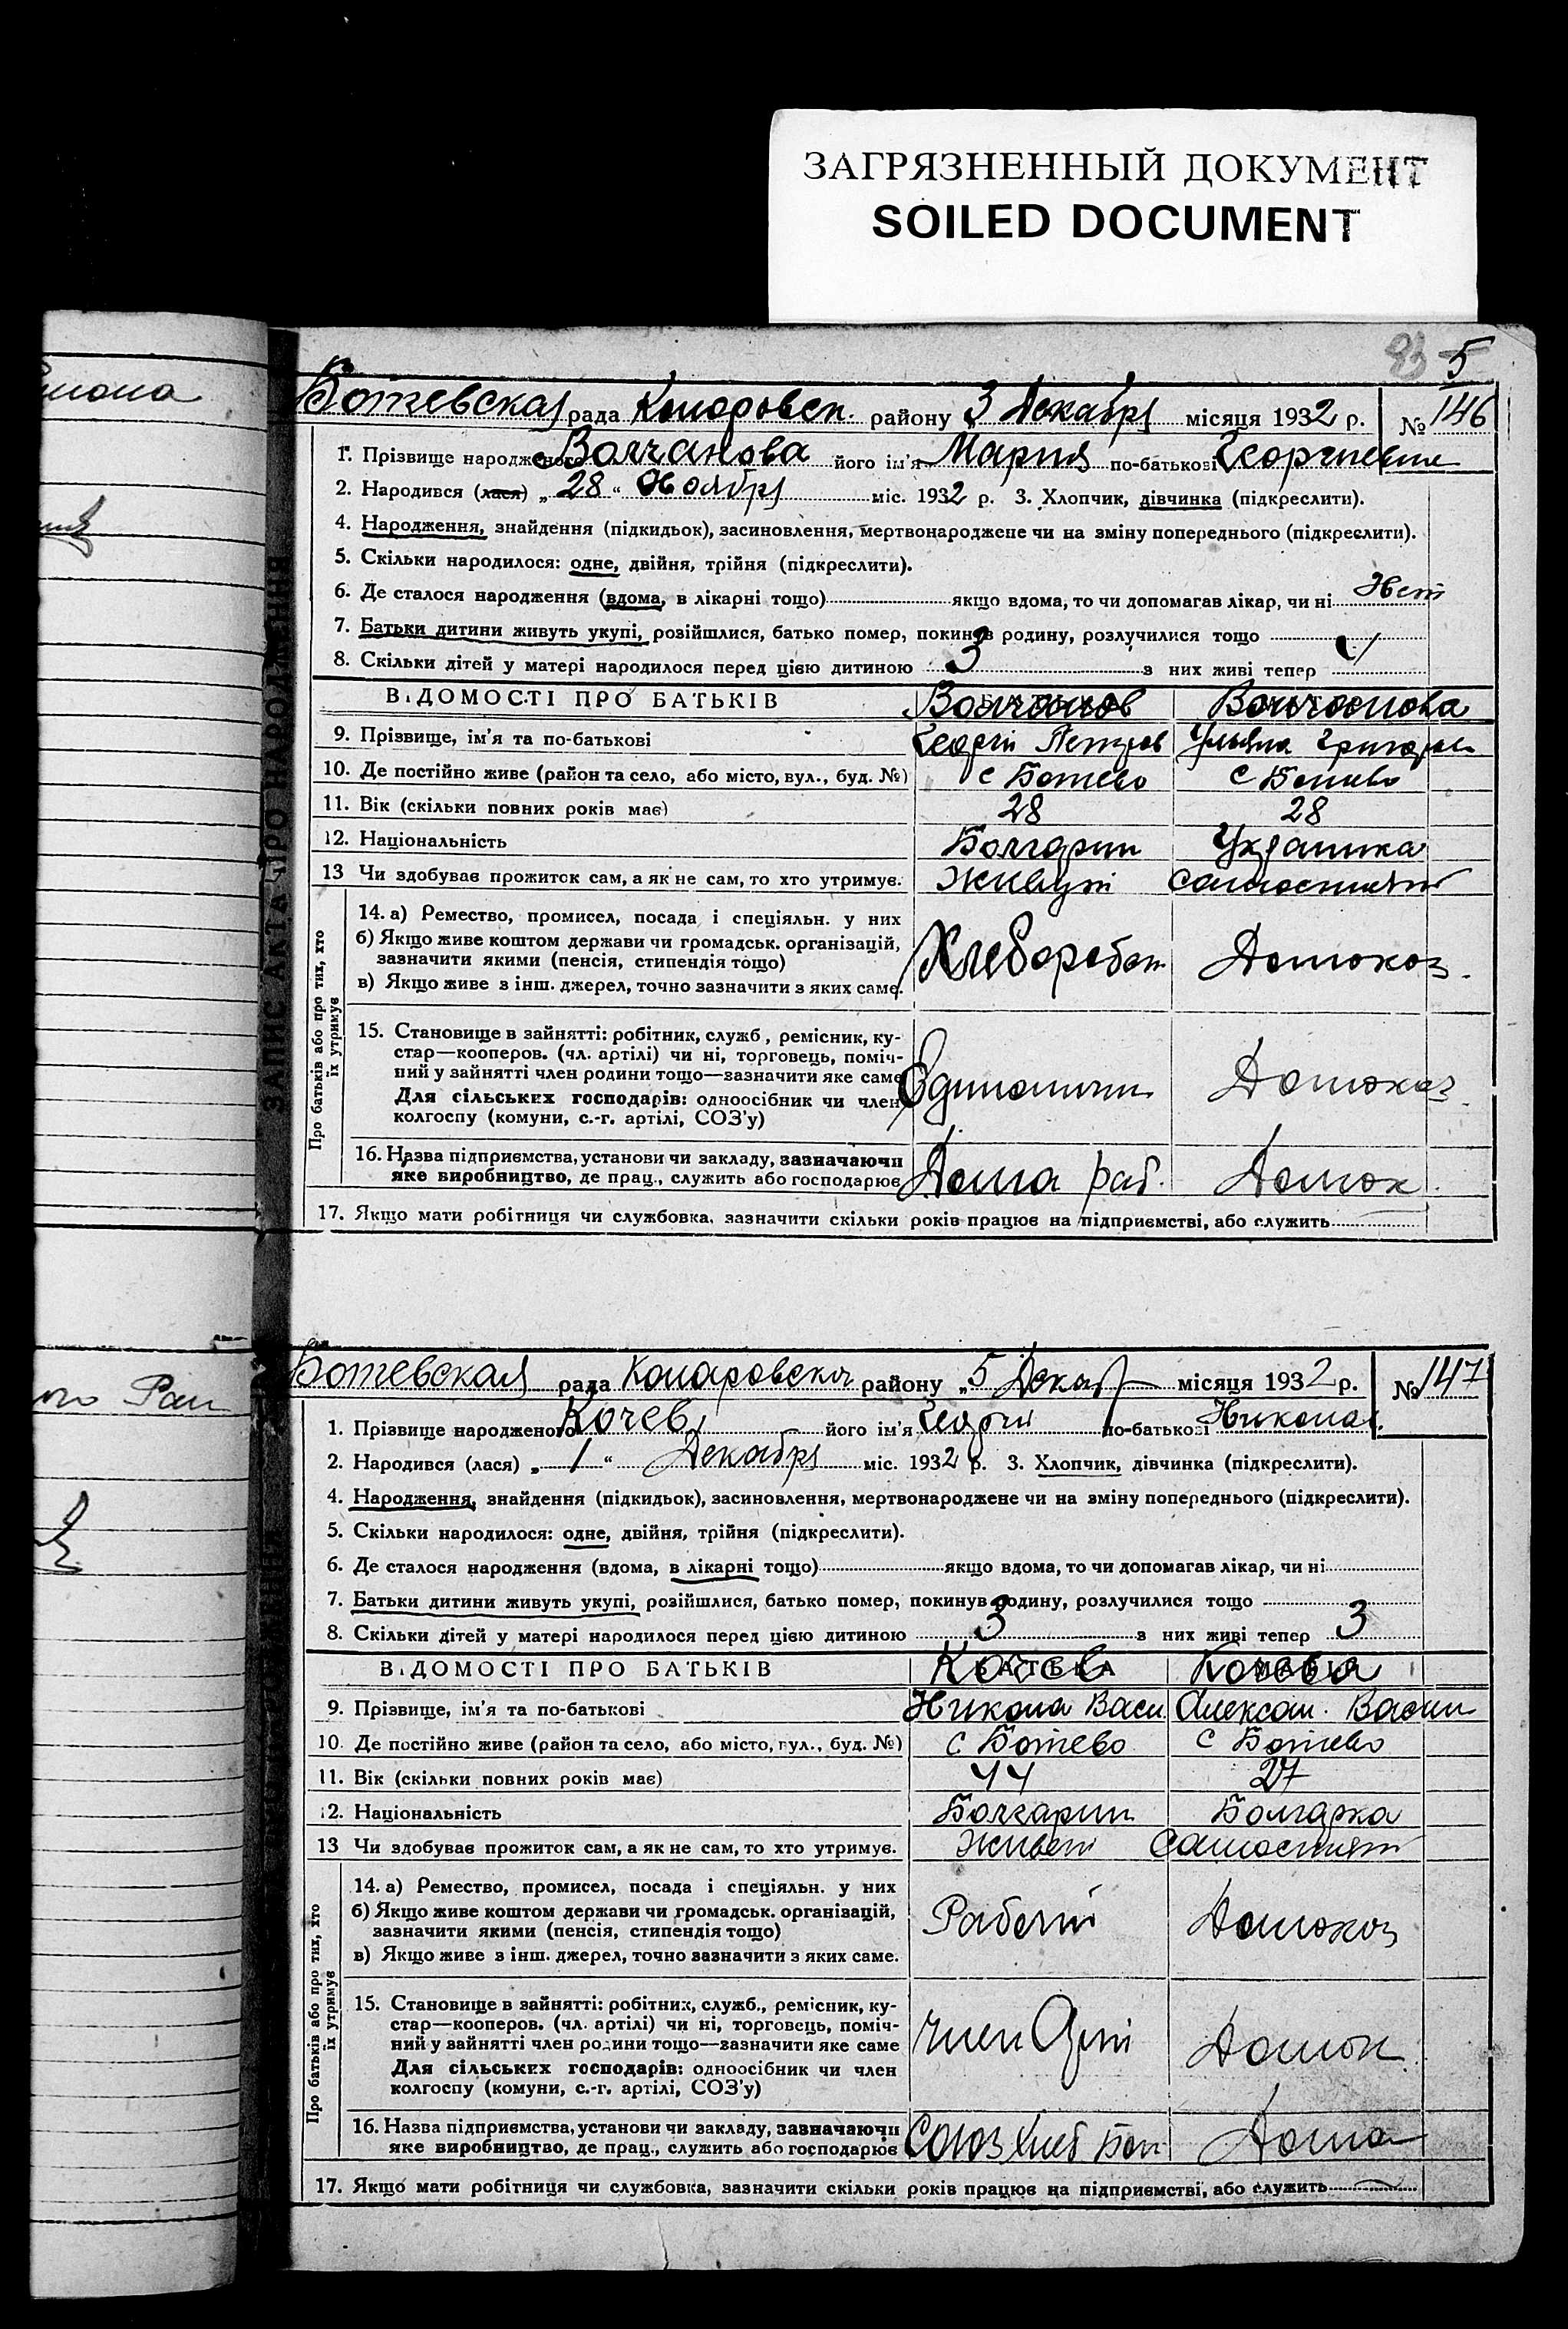 ЗАГРЯЗНЕННЫЙ ДОКУМЕНТ
SOILED DOCUMENT
5
Ботевская рада Комаровск. району 3 Декабря місяця 1932 р. № 146
1. Прізвище народженого Волчанова його ім'я Мария по-батькові Георгиевна
2. Народився (лася) „28“ Ноября міс. 1932 р. 3. Хлопчик, дівчинка (підкреслити).
4. Народження, знайдення (підкидьок), засиновлення, мертвонароджене чи на зміну попереднього (підкреслити).
5. Скільки народилося: одне, двійня, трійня (підкреслити).
6. Де сталося народження (вдома, в лікарні тощо) якщо вдома, то чи допомагав лікар, чи ні Нет
7. Батьки дитини живуть укупі, розійшлися, батько помер, покинув родину, розлучилися тощо
8. Скільки дітей у матері народилося перед цією дитиною 3 з них живі тепер
ВІДОМОСТІ ПРО БАТЬКІВ Волчанов Волчанова
9. Прізвище, ім'я та по-батькові Георгій Петров Ульяна Григорьев
10. Де постійно живе (район та село, або місто, вул., буд. №) с Ботево с Ботево
11. Вік (скільки повних років має) 28 28
12. Національність Болгарин Украинка
13 Чи здобував прожиток сам, а як не сам, то хто утримує. Живут самостият
Про батьків або про тих, хто їх утримує
14. а) Ремество, промисел, посада і спеціяльн. у них
б) Якщо живе коштом держави чи громадськ. організацій,
зазначити якими (пенсія, стипендія тощо) Хлебороб Домохоз.
в) Якщо живе з інш. джерел, точно зазначити з яких саме.
15. Становище в зайнятті: робітник, служб, ремісник, ку-
стар—кооперов. (чл. артілі) чи ні, торговець, поміч-
ний у зайнятті член родини тощо—зазначити яке саме
Для сільських господарів: одноосібник чи член Единолични Домохоз.
колгоспу (комуни, с.-г. артілі, СОЗ'у)
16. Назва підприємства, установи чи закладу, зазначаючи
яке виробництво, де прац., служить або господарює Дома раб. Домох.
17. Якщо мати робітниця чи службовка, зазначити скільки років працює на підприємстві, або служить
ЗАПИС АКТА ПРО НАРОДЖЕННЯ
Ботевская рада Комаровско району „5 Декаб місяця 1932 р. № 147
1. Прізвище народженого Кочев його ім'я Георги по-батькові Никола.
2. Народився (лася) „1“ Декабря міс. 1932 р. 3. Хлопчик, дівчинка (підкреслити).
4. Народження, знайдення (підкидьок), засиновлення, мертвонароджене чи на зміну попереднього (підкреслити).
5. Скільки народилося: одне, двійня, трійня (підкреслити).
6. Де сталося народження (вдома, в лікарні тощо) якщо вдома, то чи допомагав лікар, чи ні
7. Батьки дитини живуть укупі, розійшлися, батько помер, покинув родину, розлучилися тощо
8. Скільки дітей у матері народилося перед цією дитиною 3 з них живі тепер 3
ВІДОМОСТІ ПРО БАТЬКІВ Кочев Кочева
9. Прізвище, ім'я та по-батькові Никола Васи Алексан. Васил
10. Де постійно живе (район та село, або місто, вул., буд. №) с Ботево с Ботево
11. Вік (скільки повних років має) 44 27
12. Національність Болгарин Болгарка
13 Чи здобував прожиток сам, а як не сам, то хто утримує. Живет Самостият
Про батьків або про тих, хто їх утримує
14. а) Ремество, промисел, посада і спеціяльн. у них
б) Якщо живе коштом держави чи громадськ. організацій,
зазначити якими (пенсія, стипендія тощо) Рабочий Домохоз
в) Якщо живе з інш. джерел, точно зазначити з яких саме.
15. Становище в зайнятті: робітник, служб., ремісник, ку-
стар—кооперов. (чл. артілі) чи ні, торговець, поміч-
ний у зайнятті член родини тощо—зазначити яке саме член Арті Домох
Для сільських господарів: одноосібник чи член
колгоспу (комуни, с.-г. артілі, СОЗ'у)
16. Назва підприємства, установи чи закладу, зазначаючи
яке виробництво, де прац., служить або господарює Союз хлеб Дома
17. Якщо мати робітниця чи службовка, зазначити скільки років працює на підприємстві, або служить